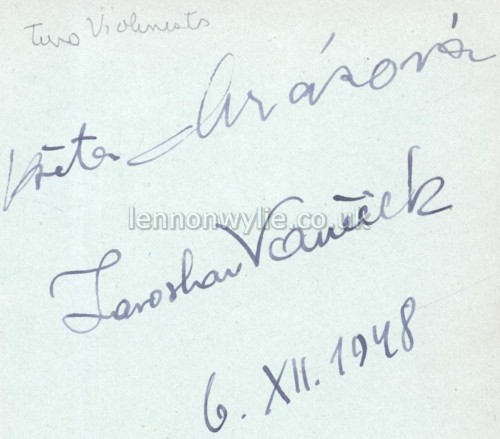 Two Violinists
Květa Mrázová
lennonwylie.co.uk
Jaroslav Vaněček
6. XII. 1948